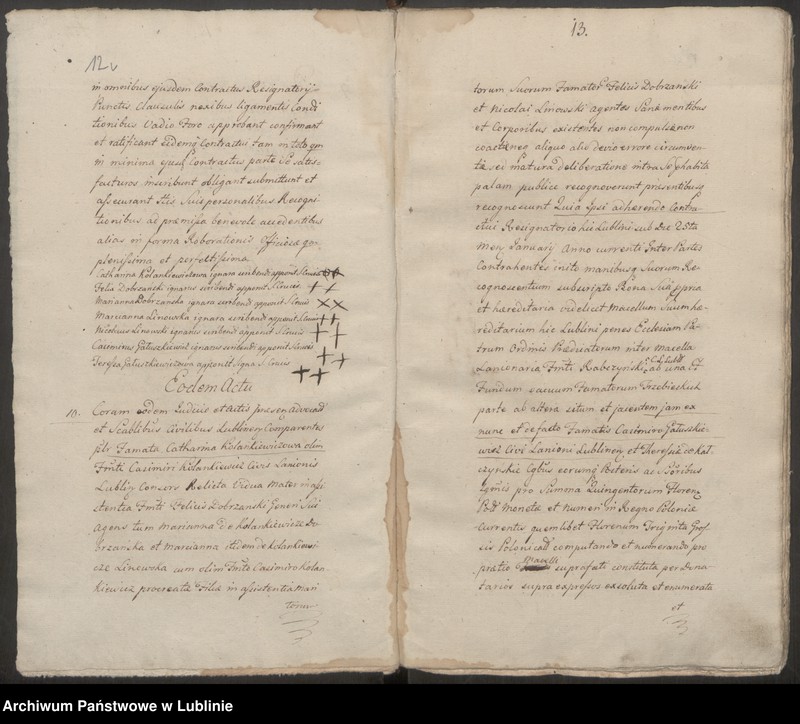 12v
in omnibus ejusdem Contractus Resignatorij
Punctis Clausulis nexibus ligamentis Condi
tionibus Vadio Foro approbant confirmant
et ratificant eidemq Contractui tam in toto qm
in minima ejus Contractus parte Se satis-
facturos inscribunt obligant submittunt et
assecurant Suis personalibus Recogni
tionibus ad præmissa benevole accedentibus
alias in forma Roborationis Officiosa
plenissima et perfectissima
Catharina Kolankiewiczowa ignara scribendi apponit S Crucis ++
Felix Dobrzanski ignarus scribendi apponit S Crucis ++
Marianna Dobrzanska ignara scribendi apponit S Crucis XX
Marcianna Linowska ignara scribendi apponit S Crucis ++
Nicolaus Linowski ignarus scribendi apponit S Crucis ++
Casimirus Gałuszkiewicz ignarus scribendi apponit S Crucis ++
Teressa Gałuszkiewiczowa apponit Signa S Crucis ++
Eodem Actu
10. Coram eodem Judicio et Actis præsen Advocat
et Scabllbus Civilibus Lublinen Comparentes
plr Famata Catharina Kolankiewiczowa olim
Fmti Casimiri Kolankiewicz Civis Lanionis
Lublin Consors Relicta Vidua Mater in assi
stentia Fmti Felicis Dobrzanski Generi Sui
agens tum Marianna de Kolankiewicze Do
brzanska et Marcianna itidem de Kolankiewi
cze Linewska cum olim Fmto Casimiro Kolan
kiewicz procreatæ Filiæ in assistentia Mari
torum
13.
torum Suorum Famatoru Felicis Dobrzanski
et Nicolai Linowski agentes Sani mentibus
et Corporibus existentes non compulsæ non
coactæ neq aliquo alio devio errore circumven
tæ sed matura deliberatione intra Se habita
palam publice recognoverunt præsentibusq
recognoscunt Quia Ipsi adhærendo Contra-
ctui Resignatorio hic Lublini sub Die 25ta
Mens Januarij Anno currenti Inter Partes
Contrahentes inito manibusq Suorum Re
cognoscentium subscripto Bona Sua ppria
et hæreditaria videlicet Macellum Suum hæ-
reditarium hic Lublini penes Ecclesiam Pa-
trum Ordinis Prædicatorum inter Macella
Lancenaria Fmti Rabczynski ab una et
Fundum vacuum Famatorum Trzebieskich
parte ab altera situm et jacentem jam ex
nunc et de facto Famatis Casimiro Gałuszkie-
wicz Civi Lanioni Lublinen et Theressæ de Kat-
czynskie Cjbus eorumq
pro Summa Quingentorum Floren
Poll Moneta et numeri in Regno Poloniæ
currentis quemlibet Florenum Triginta Gros
sis Polonicall computando et numerando pro
prætio Macelli suprafati constituta per Dona
tarios supra expressos exsoluta et enumerata
et
Archiwum Państwowe w Lublinie